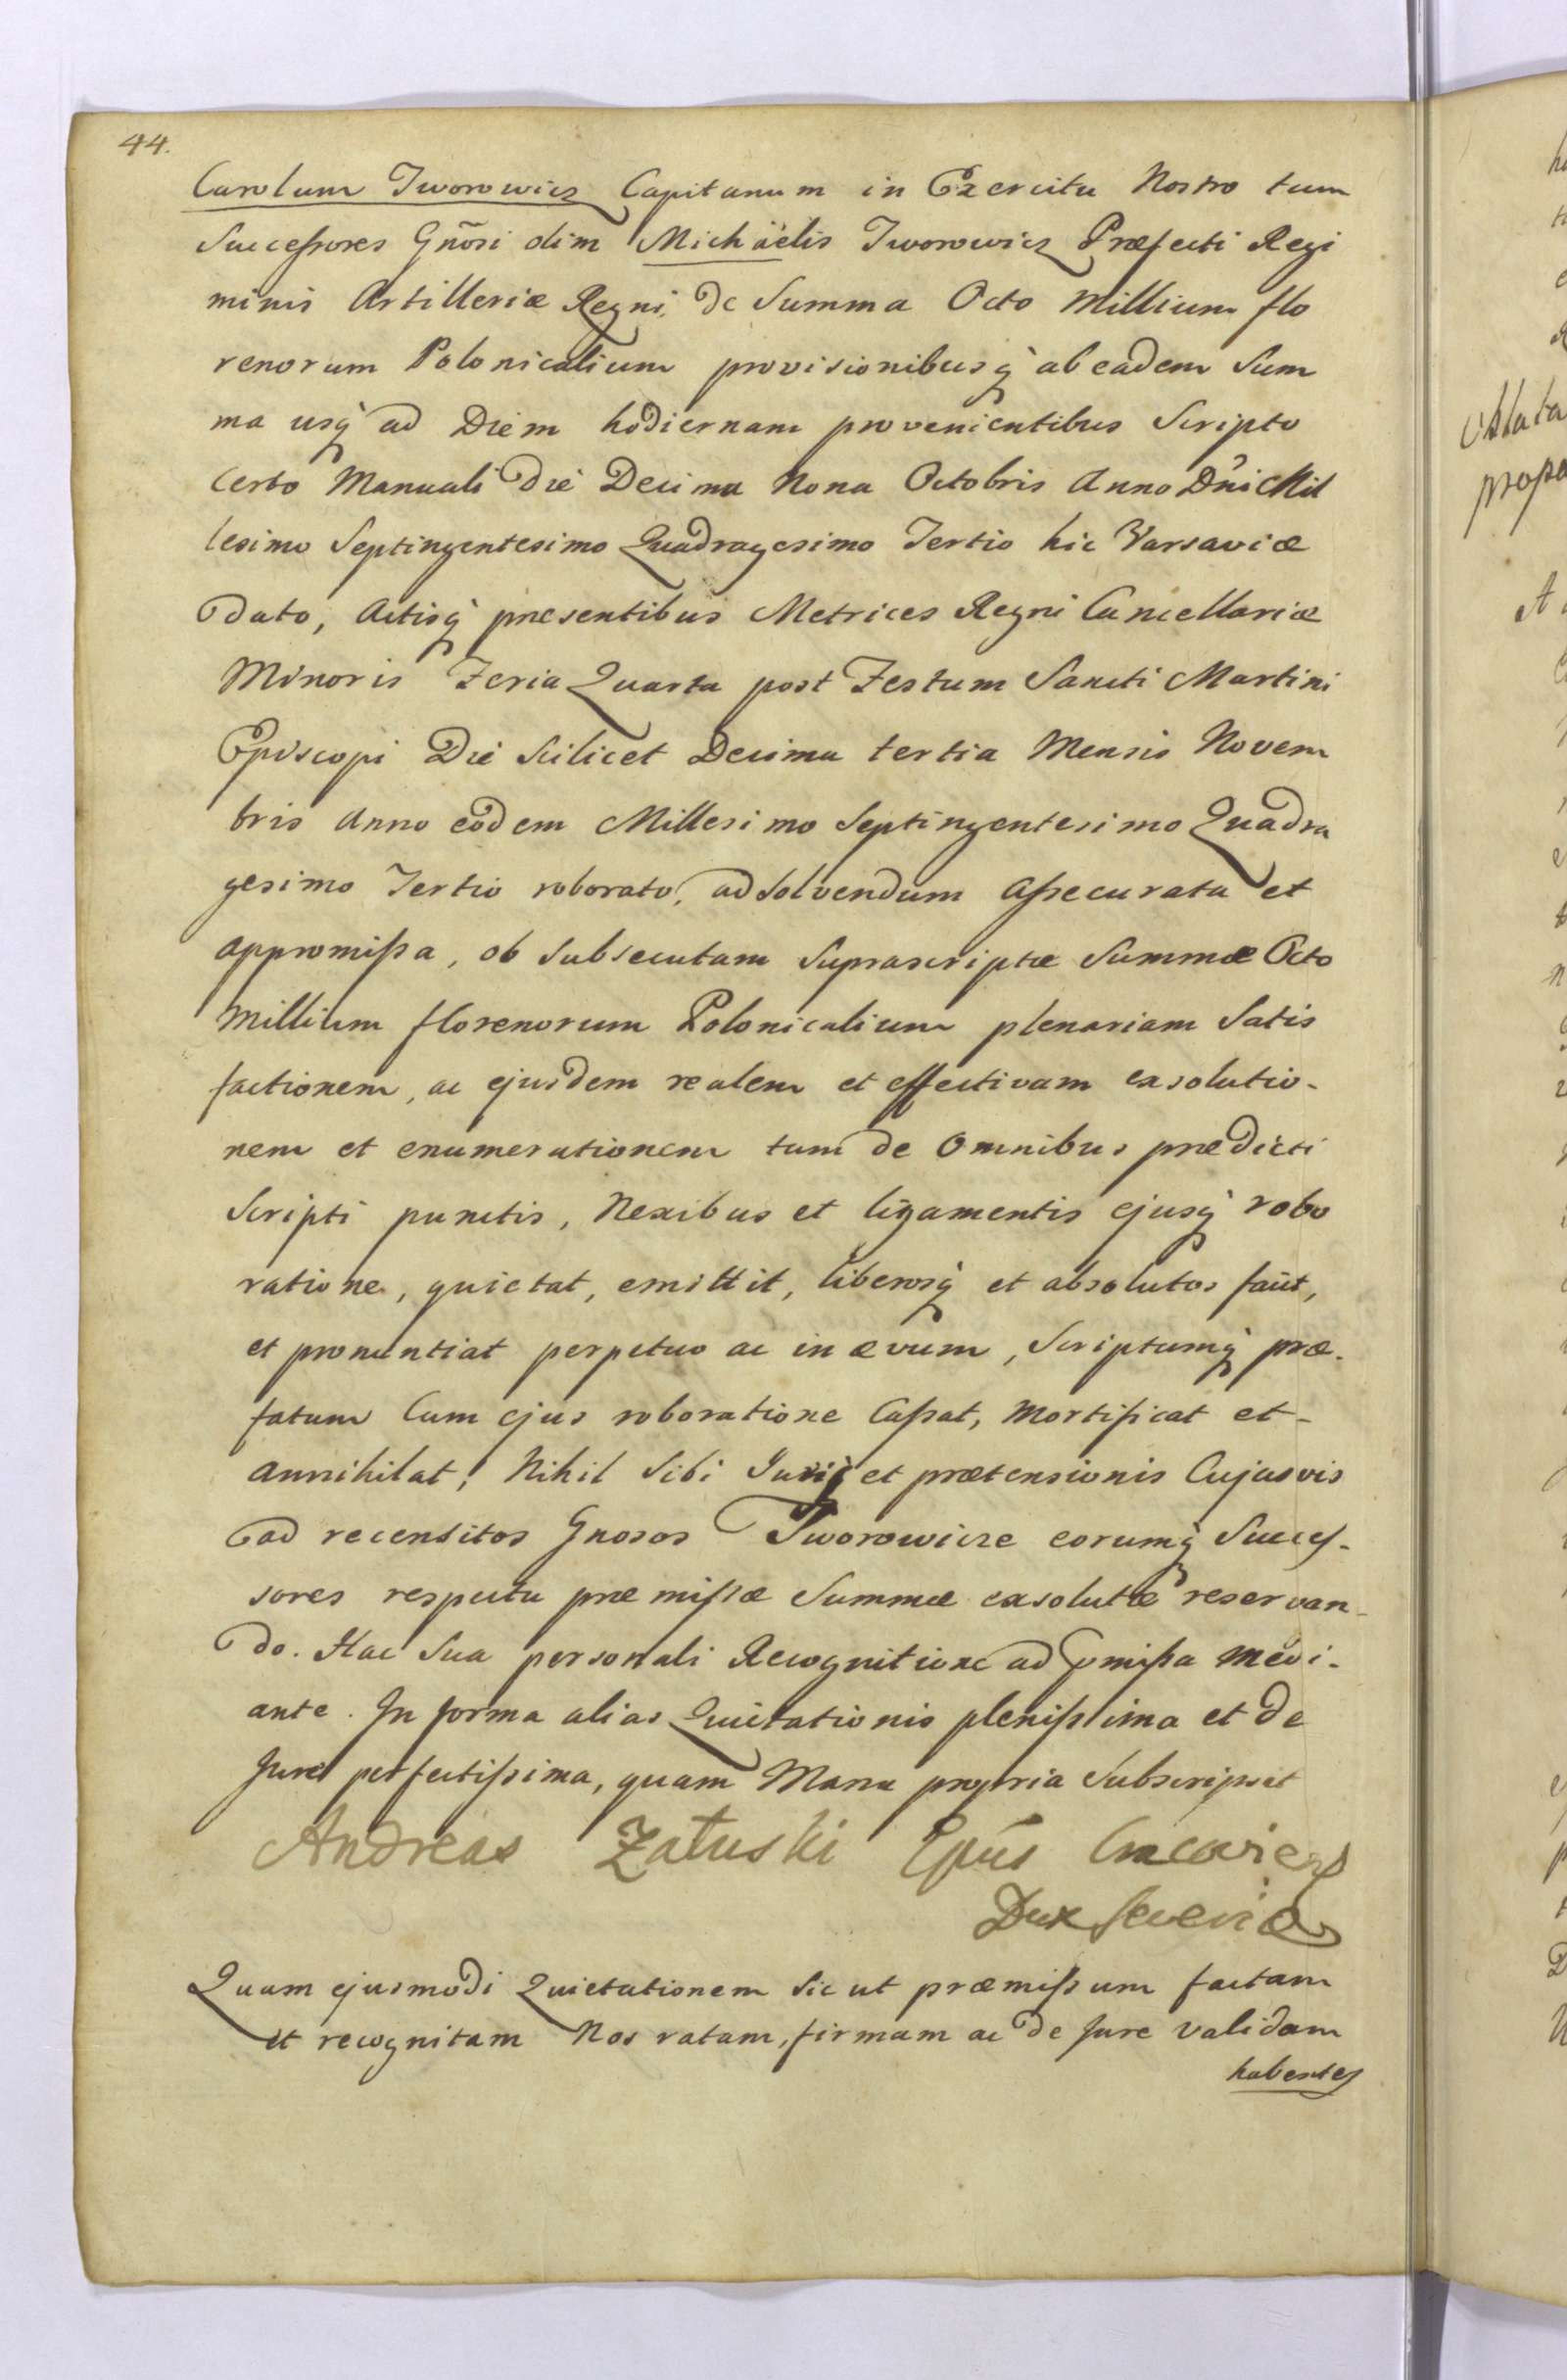 44.
Carolum Tworowicz Capitanum in Exercitu Nostro tum
Successores Gñosi olim Michäelis Tworowicz Præfecti Regi
minis Artilleriæ Regni, de Summa Octo Millium flo
renorum Polonicalium provisionibusq̀ ab eadem Sum
ma usq̀ ad Diem hodiernam provenientibus Scripto
Certo Manuali Die Decima Nona Octobris Anno Dñi Mil
lesimo Septingentesimo Quadragesimo Tertio hic Varsaviæ
dato, Actisq̀ præsentibus Metrices Regni Cancellariæ
Minoris Feria Quarta post Festum Sancti Martini
Episcopi Die Scilicet Decima tertia Mensis Novem
bris Anno eodem Millesimo Septingentesimo Quadra
gesimo Tertio roborato, ad Solvendum Assecurata et
appromissa, ob Subsecutam Suprascriptæ Summæ Octo
Millium florenorum Polonicalium plenariam Satis
factionem, ac ejusdem realem et effectivam exsolutio-
nem et enumerationem tum de Omnibus prædicti
Scripti punctis, Nexibus et ligamentis ejusq̀ robo
ratione, quietat, emittit, liberosq̀ et absolutos faüt,
et pronuntiat perpetuo ac in ævum, Scriptumq̀ præ-
fatum Cum ejus roboratione Cassat, Mortificat et-
annihilat; Nihil Sibi Juris et prætensionis Cujusvis
ad recensitos Gnosos Tworowicze eorumq̀ Succes-
sores respectu præmissæ Summæ exsolutæ reservan-
do. Hac Sua personali Recognitione ad pmissa Medi-
ante. In forma alias Quietationis plenissima et de
Jure perfectissima, quam Manu propria Subscripsit
Andreas Załuski Epũs Cracovien̄s
Dux Severiæ
Quam ejusmodi Quietationem Sic ut præmissum factam
et recognitam Nos ratam, firmam ac de Jure validam
habentes
oblata